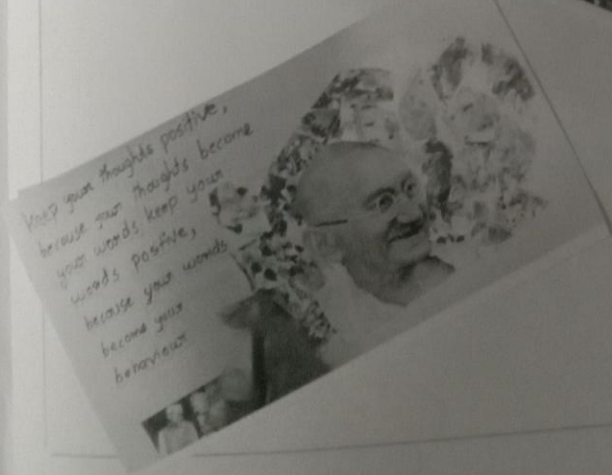 Keep your thoughts positive,
because your thoughts become
your words, keep your
words positive,
because your words
become your
behaviour